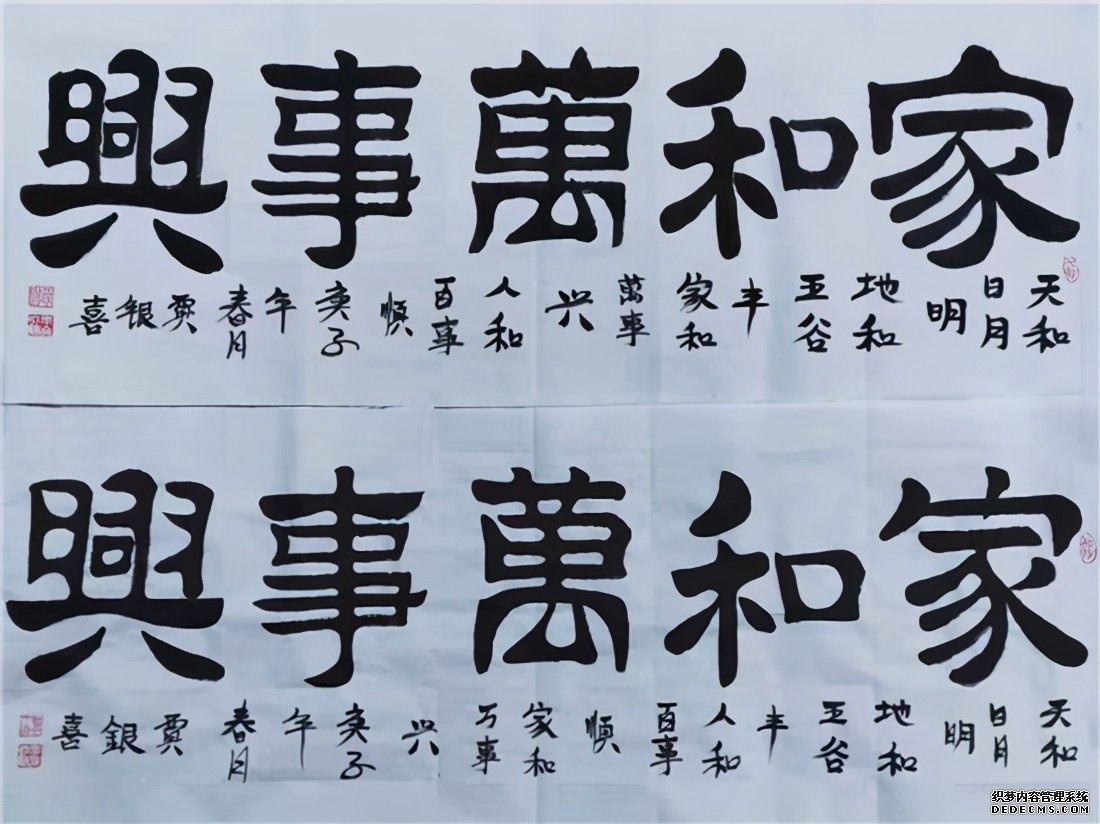 家和萬事興
天和日月明地和五谷丰家和萬事兴人和百事顺庚子年春月贾银喜
家和萬事興
天和日月明地和五谷丰人和百事顺家和万事兴庚子年春月贾银喜
织梦内容管理系统
DEDECMS.COM